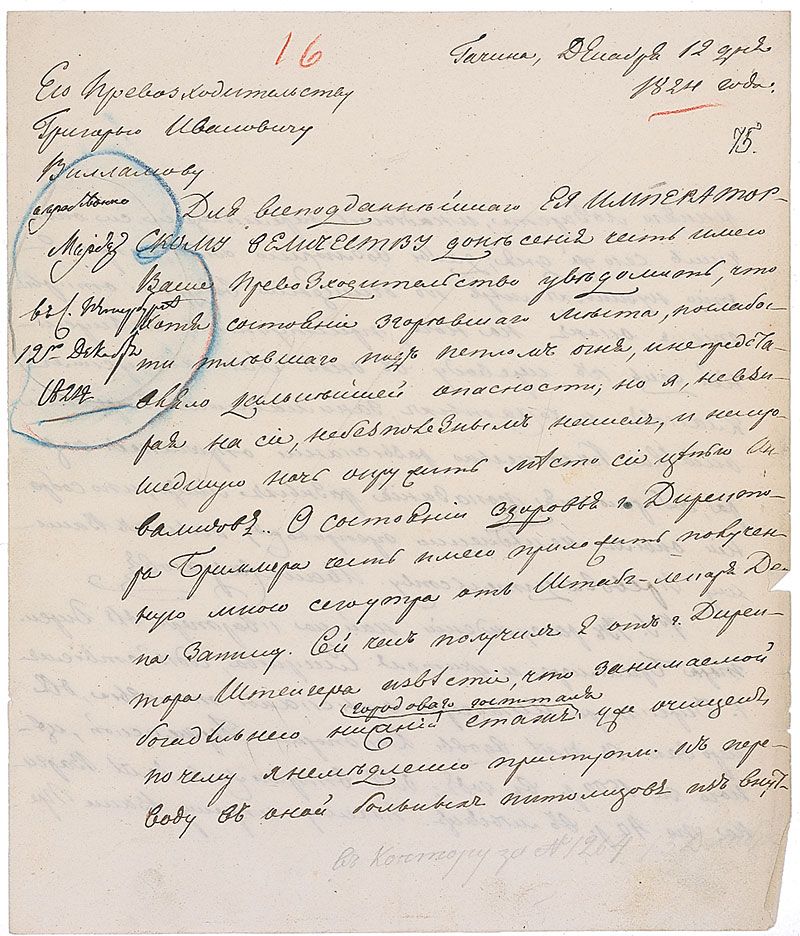 16
Гачина, Декабря 12 дня
1824 года.
75.
Его Превозходительству
Григорью Ивановичу
Вилламову
въ С. Петербургѣ
12го Декабря
1824
Для всеподданнѣйшаго ЕЯ ИМПЕРАТОР-
СКОМУ ВЕЛИЧЕСТВУ донѣсения честь имею
Ваше Превозходительство увѣдомить, что
хотя состояние згорѣвшаго мѣста, послабо-
ти тлѣвшаго подъ пепломъ огня, и непредста-
вляло дальнѣйшей опасности; но я, невзи-
рая на сіе, небезполезнымъ нашелъ, и на
шедшую ночь окружить мѣсто сіе цѣпью Ин-
валидовъ. О состояніи здоровья г. Директо-
ра Бриммера честь имею приложить получен-
ную мною сегоутра отъ Штабъ-лекаря
на Записку. Сей часъ получилъ я отъ г. Дирек-
тора Штейгера извѣстіе, что занимаемой
городоваго госпиталя
богадѣльнею нижній этажъ уже очищенъ,
почему я немѣдленно приступлю къ пере-
воду въ оной больныхъ питомцовъ изъ
въ Контору за № 1264